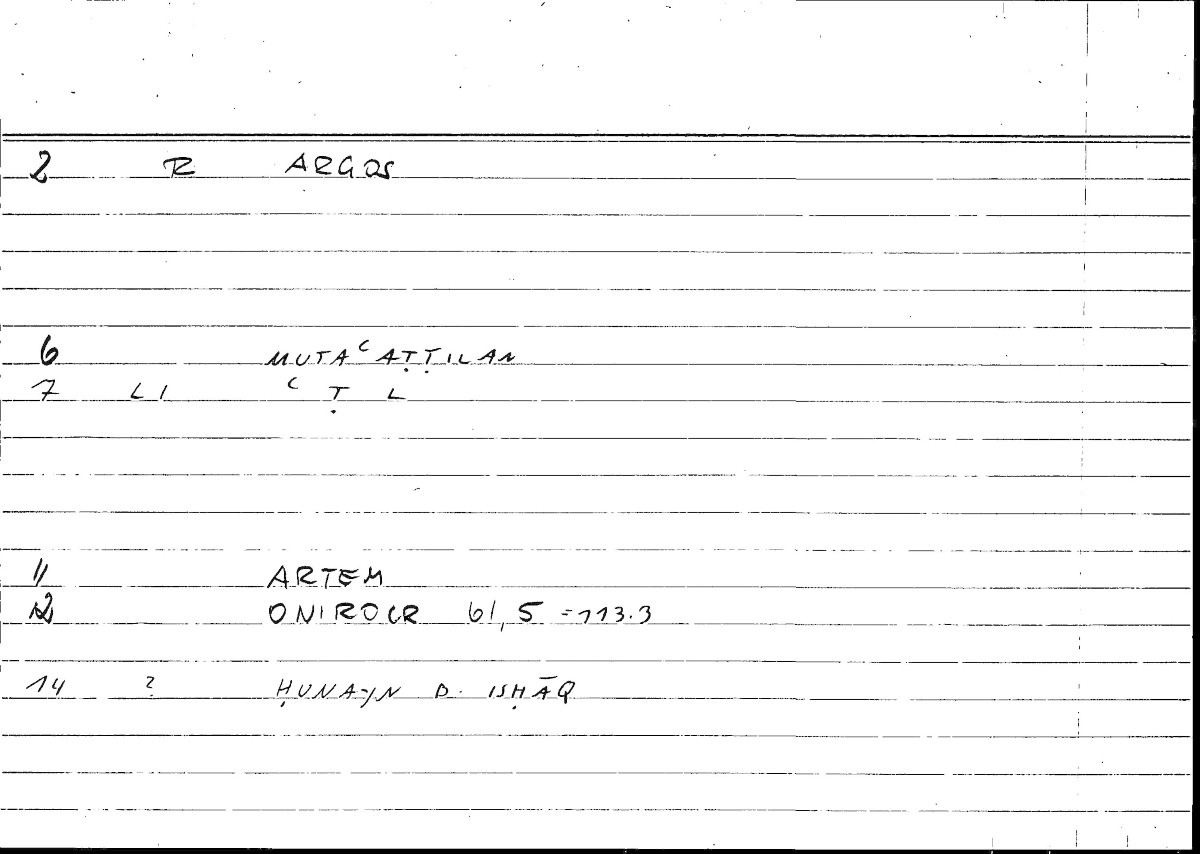 2 R ARGOS
6 MUTAᶜAṬṬILAN
7 LI ᶜ Ṭ L
11 ARTEM
12 ONIROCR 61,5 =113.3
14 ? ḤUNAYN B. ISḤĀQ